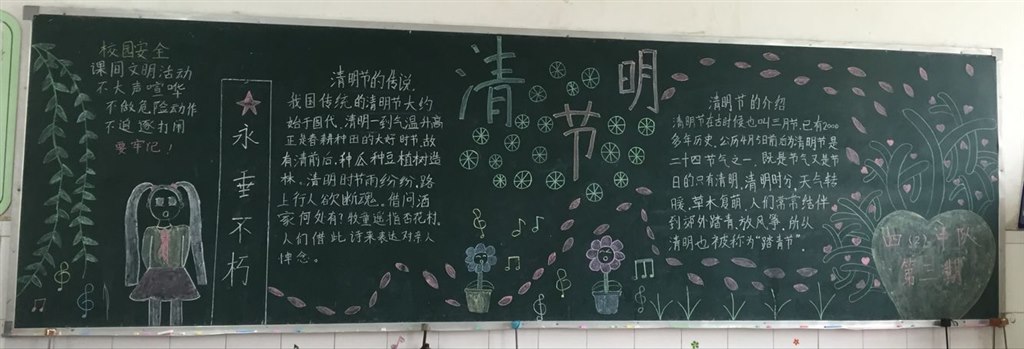 校园安全
课间文明活动
不大声喧哗
不做危险动作
不追逐打闹
要牢记！
永垂不朽
清明节的传说
我国传统的清明节大约
始于周代、清明一到气温升高
正是春耕种田的大好时节，故
有清前后、种瓜种豆植树造
林、清明时节雨纷纷，路
上行人欲断魂。借问酒
家何处有？牧童遥指杏花村。
人们借此诗来表达对亲人
悼念。
清明节
清明节的介绍
清明节在古时候也叫三月节，已有2000
多年历史，公历4月5日前后为清明节是
二十四节气之一，既是节气又是节
日的只有清明，清明时分，天气转
暖，草木复萌，人们常常结伴
到郊外踏青、放风筝，所以
清明也被称为"踏青节"
四(2)中队
第三期